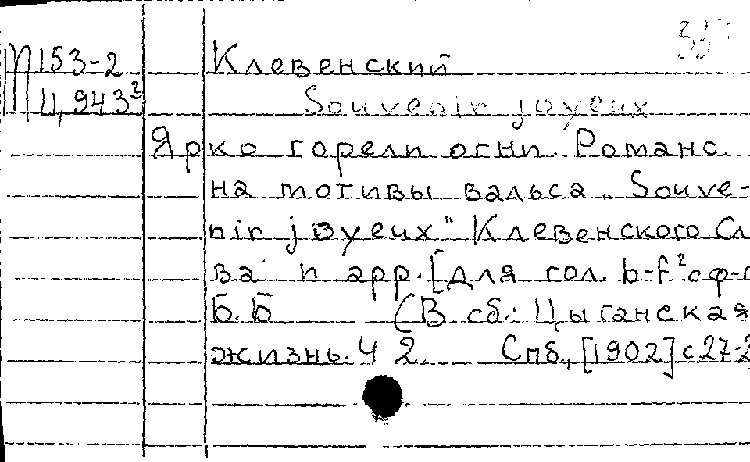 П153-2 Клевенский
Ц,943² Souvenir joyeux
Ярко горели огни. Романс
на мотивы вальса „Souve-
nir joyeux" Клевенского Сл
ва и арр. [для гол. b-f² с ф-п
Б.Б (В сб.: Цыганская
жизнь. Ч 2. Спб., [1902] с 27-2